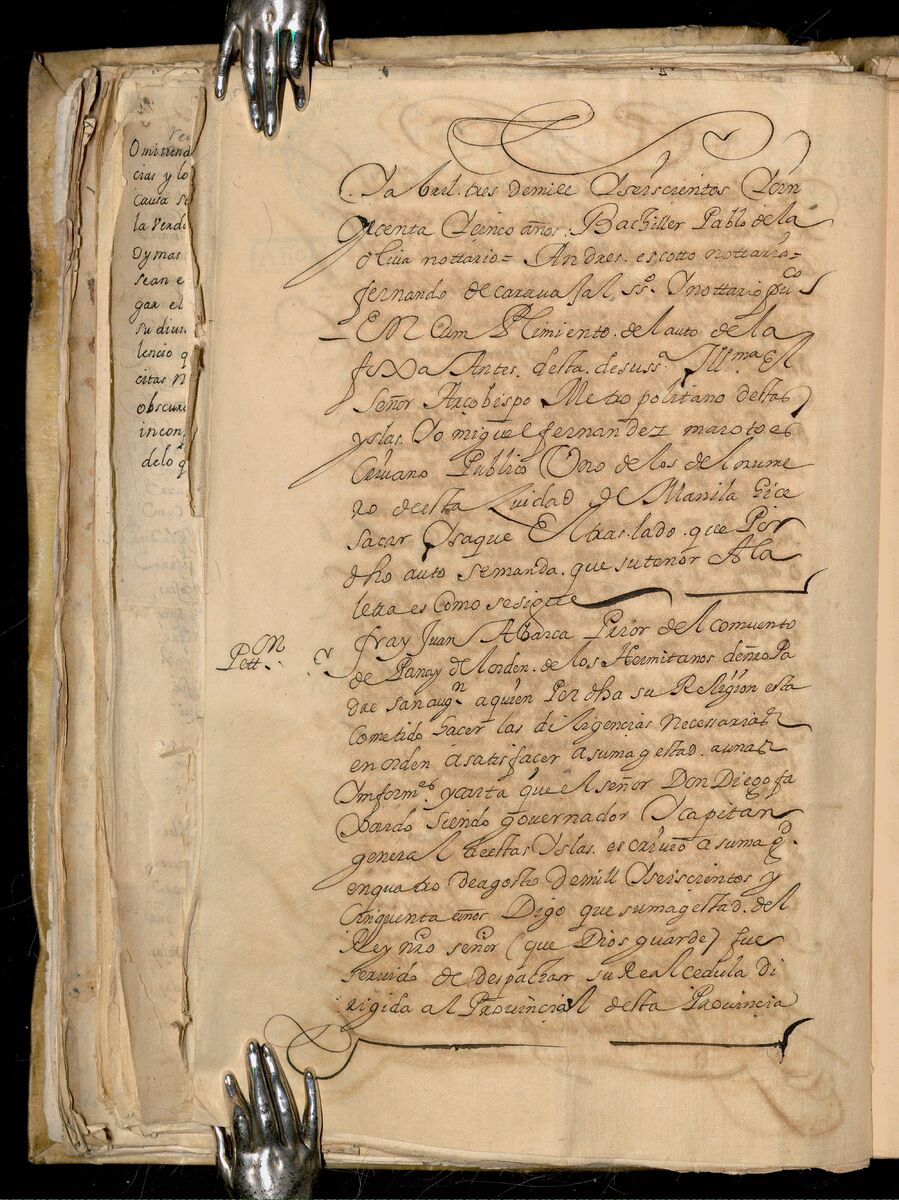 Omitiend
cias y lo
Causa se
la Verda
Dymas
sean e
gar el
su diun
lencio q
citas N
obscure
incon
delo q
Yabril. tres demill Yseiscientos Ycin
quenta Ycinco años. Bachiller Pablo dela
oliua nottario= Andres. escotto nottario=
fernando de carauajal, ssº. Ynottario puCo
EN Cum Plimiento. del auto de la
foxa Antes. desta. desussª Yllma El
Señor Arcobispo Metropolitano destas
yslas. Yo miguel fernandez maroto es
Criuano Publico Vno de los del nume
ro de esta Ciudad de Manila hice
sacar Ysaque El traslado. que Por
dho auto semanda. que sutenor Ala
letra es Como sesigue
Petton.
fray Juan Abarca Prior del comuento
de Panay del orden. de los Hermitanos denro Pa
dre san augn aquien Por dha su Religion esta
Cometido hacer las diligencias necessarias
en orden asatisfacer asumagestad. aunas
Ynformes. ycarta que el señor Don Diego fa
xardo siendo governador Ycapitan
general deestas Yslas. escriuio asumagd.
enquatro deagosto demill Yseiscientos y
Cinquenta años Digo que sumagestad. del
Rey nro señor (que Dios guarde) fue
seruido de despachar su Real cedula di
rigida al Prouincial desta Prouincia